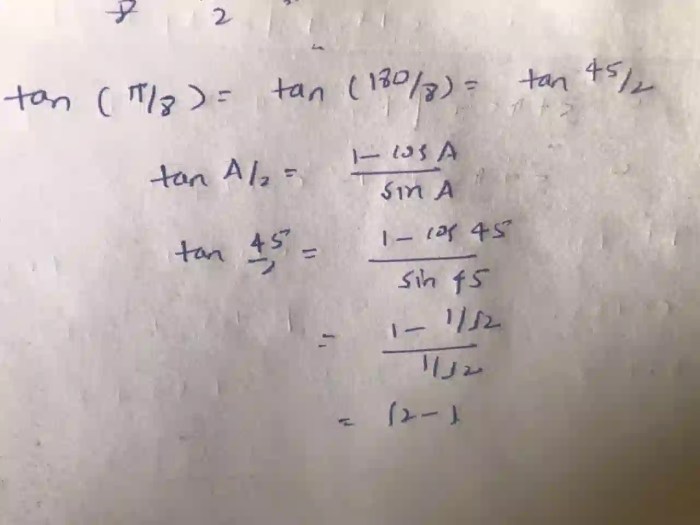 8 2
tan (π/8) = tan (180/8) = tan 45/2
tan A/2 = 1 - cos A / sin A
tan 45/2 = 1 - cos 45 / sin 45
= 1 - 1/√2 / 1/√2
= √2 - 1